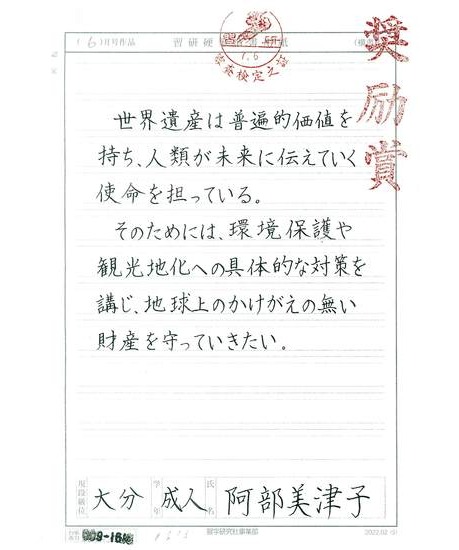 (6)月号作品
習研硬
1.6
審査検定之証
奨励賞
世界遺産は普遍的価値を
持ち、人類が未来に伝えていく
使命を担っている。
そのためには、環境保護や
観光地化への具体的な対策を
講じ、地球上のかけがえの無い
財産を守っていきたい。
大分
学年
成人
氏名
阿部美津子
習字研究社事業部
2022.02